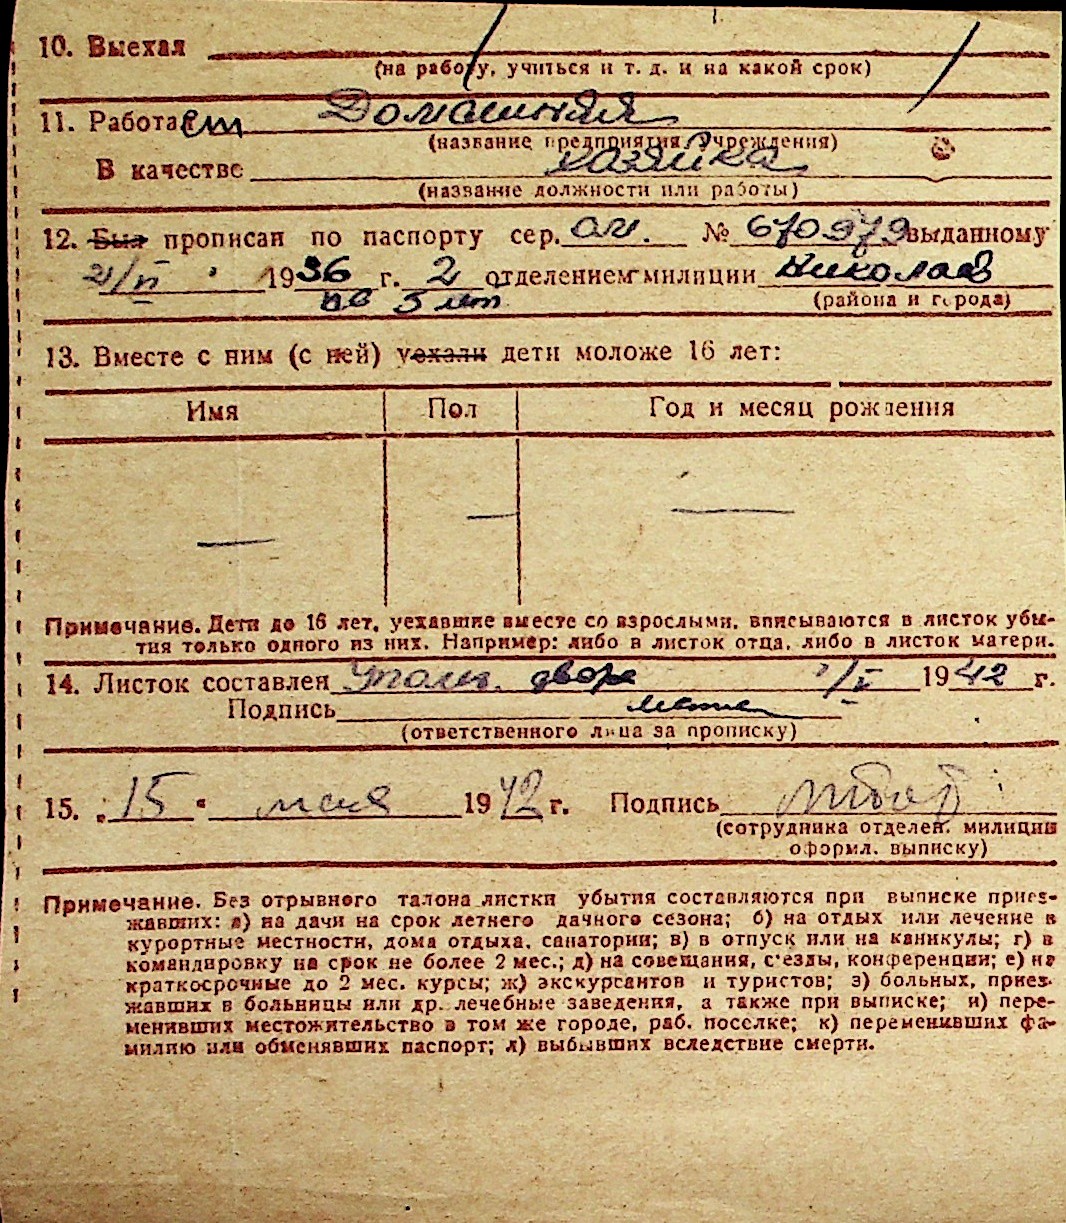 10. Выехал
(на работу, учиться и т. д. и на какой срок)
11. Работает Домашняя
(название предприятия, учреждения)
В качестве хозяйка
(название должности или работы)
12. Был прописан по паспорту сер. ОИ. № 670979 выданному
21/VI 1936 г. 2 отделением милиции Николаев
на 5 лет (района и города)
13. Вместе с ним (с ней) уехали дети моложе 16 лет:
Имя Пол Год и месяц рождения
— — —
Примечание. Дети до 16 лет, уехавшие вместе со взрослыми, вписываются в листок убы-
тия только одного из них. Например: либо в листок отца, либо в листок матери.
14. Листок составлен Уполн. двора /V 1942 г.
Подпись
(ответственного лица за прописку)
15. „15“ мая 1942 г. Подпись
(сотрудника отделен. милиции
оформл. выписку)
Примечание. Без отрывного талона листки убытия составляются при выписке приез-
жавших: а) на дачи на срок летнего дачного сезона; б) на отдых или лечение в
курортные местности, дома отдыха, санатории; в) в отпуск или на каникулы; г) в
командировку на срок не более 2 мес.; д) на совещания, с'езды, конференции; е) на
краткосрочные до 2 мес. курсы; ж) экскурсантов и туристов; з) больных, приез-
жавших в больницы или др. лечебные заведения, а также при выписке; и) пере-
менивших местожительство в том же городе, раб. поселке; к) переменивших фа-
милию или обменявших паспорт; л) выбывших вследствие смерти.